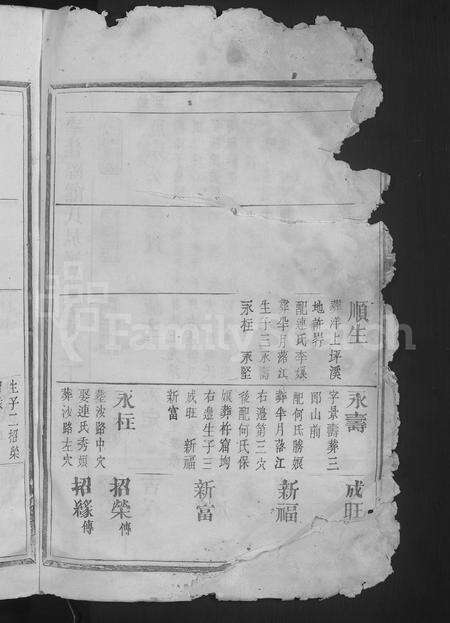 順生
葬洋上坪溪
地許畔
配連氏李娘
葬半月落江
生子三永壽
永枉 永堅
永壽
字景壽葬三
郎山前
配何氏勝娘
葬半月落江
右邊第三穴
後配何氏保
娘葬柞窩塆
右邊生子三
成旺 新福
新富
永枉
葬沙路中穴
娶連氏秀娘
葬沙路左穴
成旺
新福
新富
招榮傳
招緣傳
生子二招榮
FamilySearch